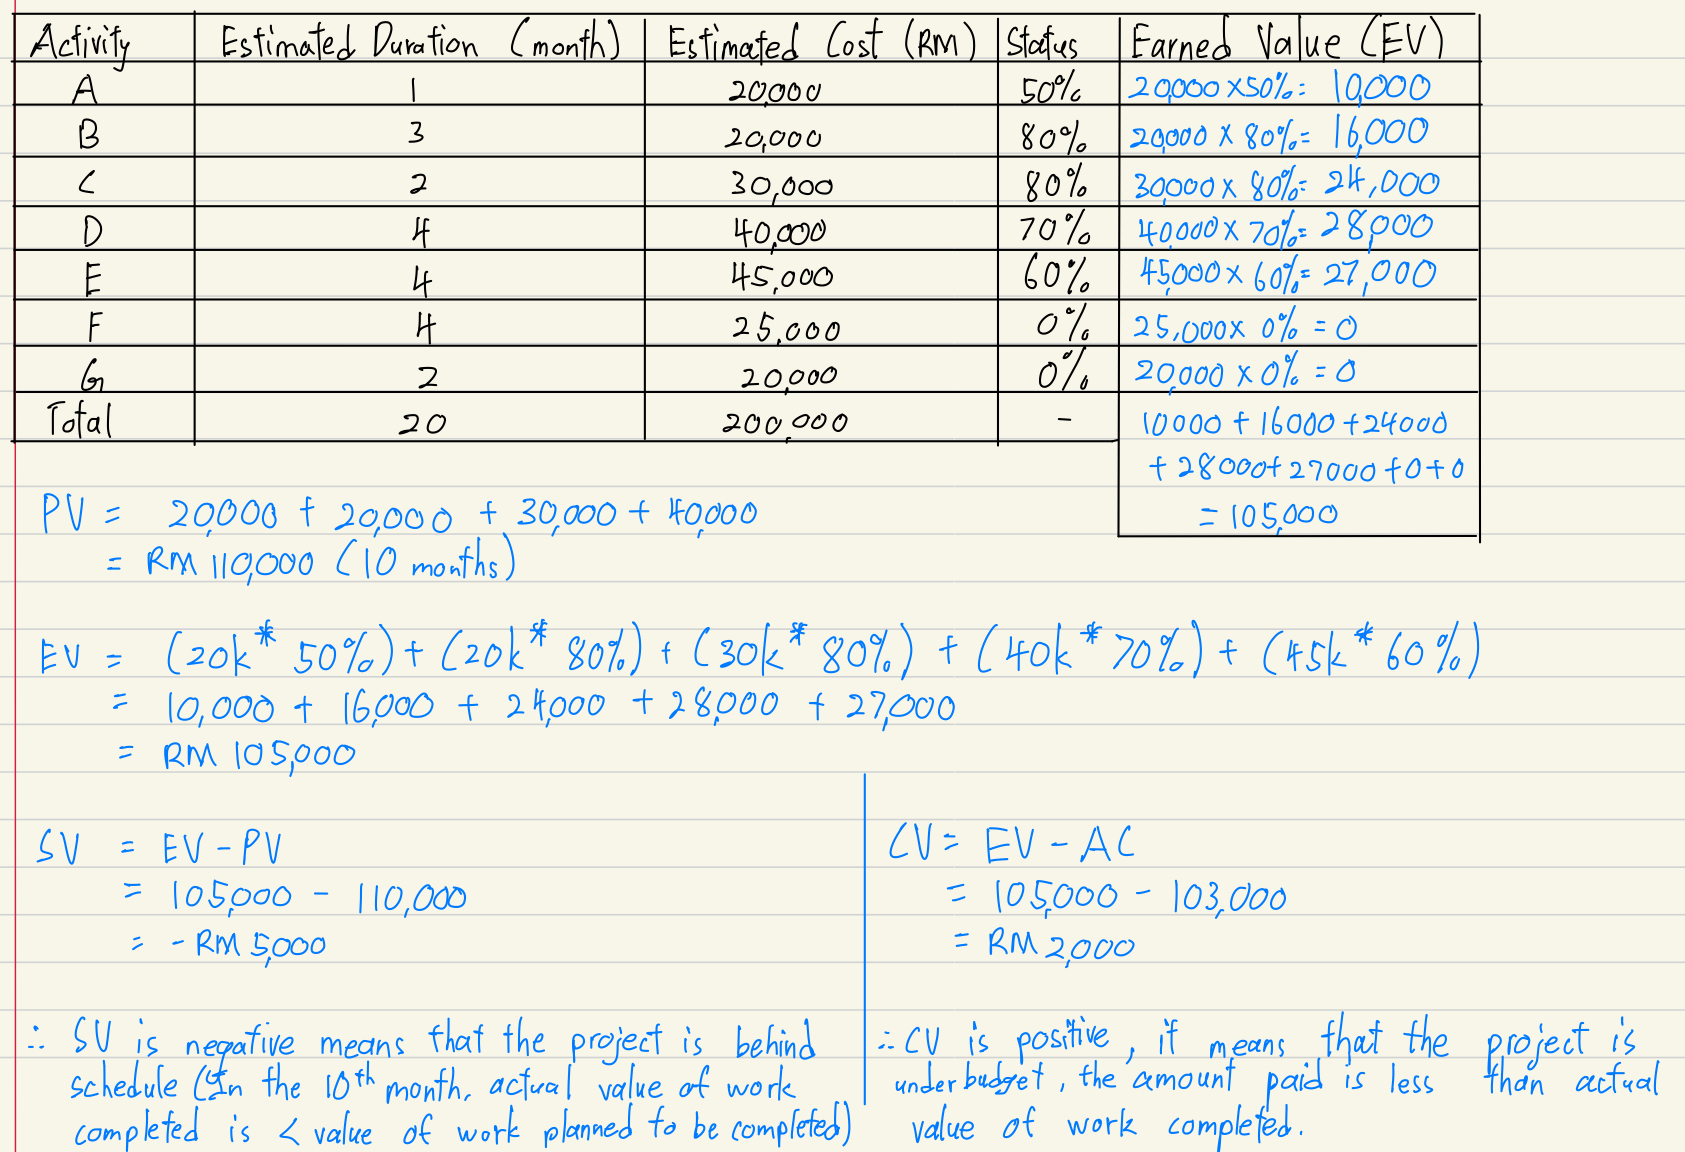 Activity Estimated Duration (month) Estimated Cost (RM) Status Earned Value (EV)
A 1 20,000 50% 20,000 x 50% = 10,000
B 3 20,000 80% 20,000 x 80% = 16,000
C 2 30,000 80% 30,000 x 80% = 24,000
D 4 40,000 70% 40,000 x 70% = 28,000
E 4 45,000 60% 45,000 x 60% = 27,000
F 4 25,000 0% 25,000 x 0% = 0
G 2 20,000 0% 20,000 x 0% = 0
Total 20 200,000 - 10000 + 16000 + 24000
+ 28000 + 27000 + 0 + 0
= 105,000
PV = 20,000 + 20,000 + 30,000 + 40,000
= RM 110,000 (10 months)
EV = (20k * 50%) + (20k * 80%) + (30k * 80%) + (40k * 70%) + (45k * 60%)
= 10,000 + 16,000 + 24,000 + 28,000 + 27,000
= RM 105,000
SV = EV - PV
= 105,000 - 110,000
= - RM 5,000
∴ SV is negative means that the project is behind
schedule (In the 10th month, actual value of work
completed is < value of work planned to be completed)
CV = EV - AC
= 105,000 - 103,000
= RM 2,000
∴ CV is positive, it means that the project is
under budget, the amount paid is less than actual
value of work completed.